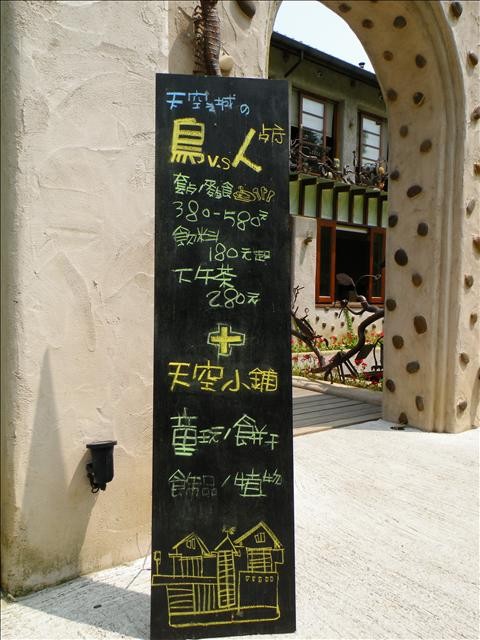 天空之城の
鳥v.s人
套点/餐食
380-580元
飲料
180元起
下午茶
280元
+
天空小鋪
童玩/餅干
飾品/植物